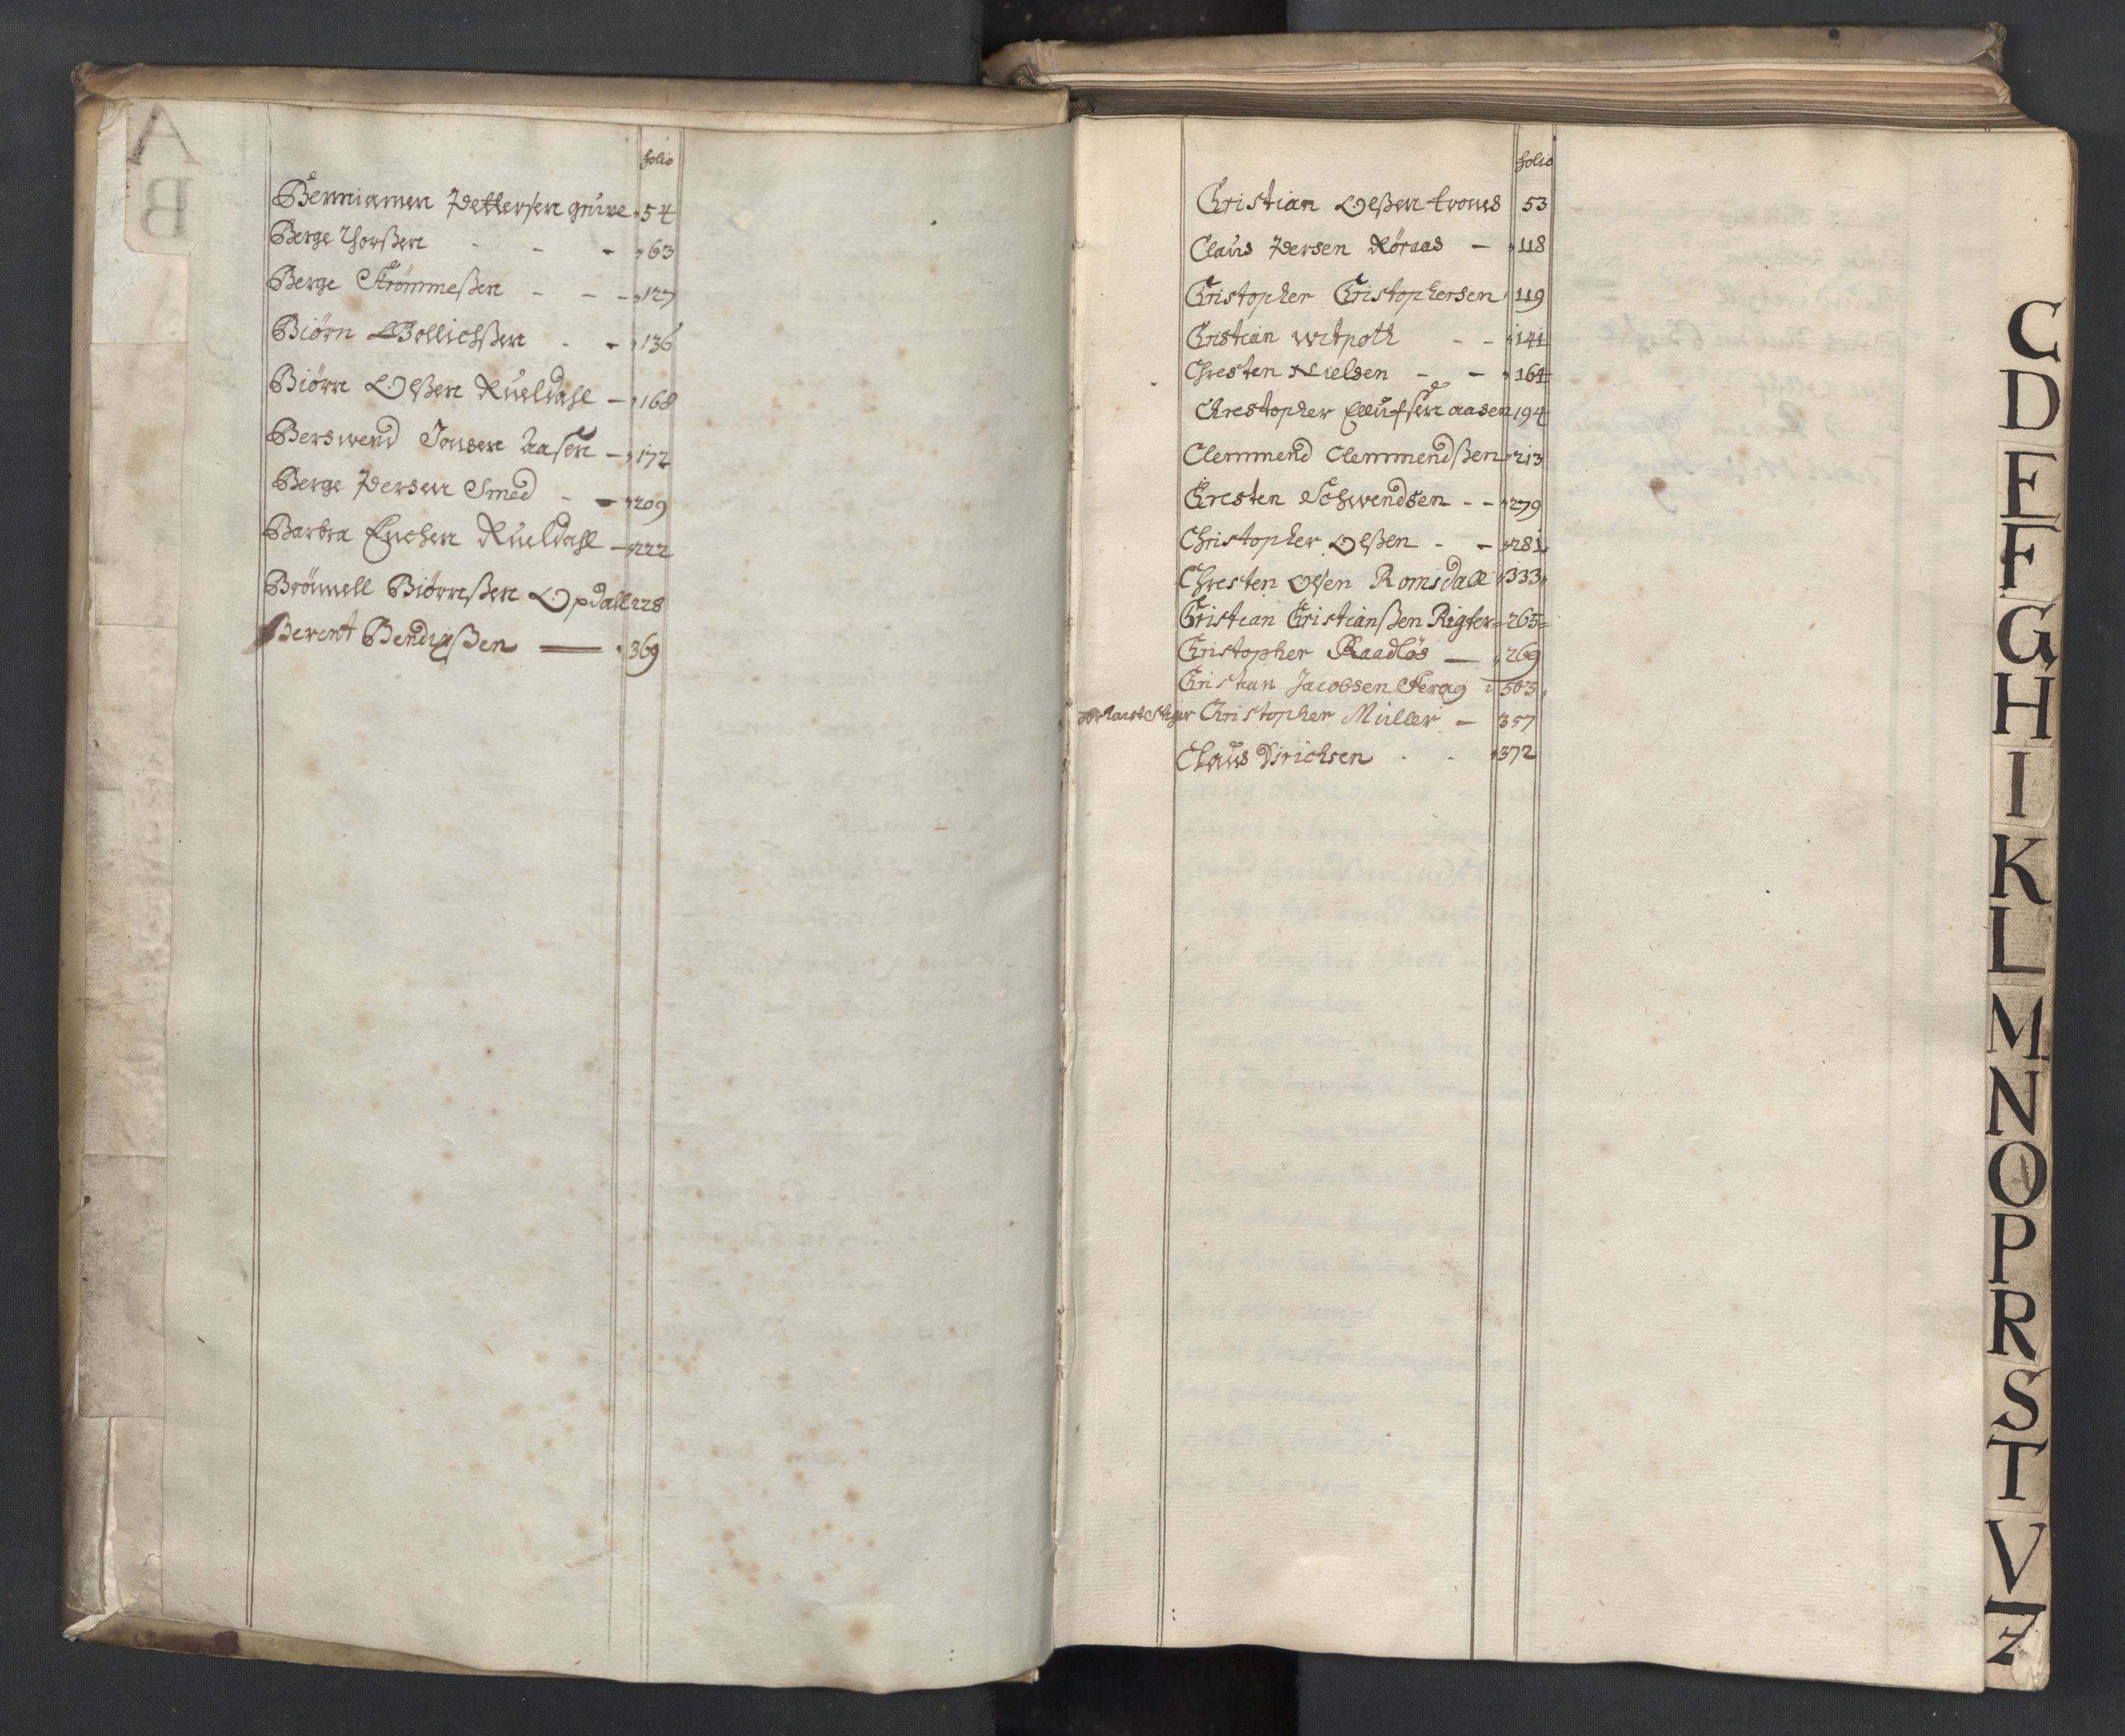 A
B
folio
Benniamen Pettersen grúve 54
Berge Thorßen - - - 63
Berge Strømmeßen - - - 127
Biørn Bollichßen - - 136
Biørn Olßen Rueldahl - 168
Berswend Jonsen Aasen - 172
Berge Persen Smed - - 209
Barbra Enchen Rueldahl - 222
Brönnell Biörnßen Opdall 228
Berent Bendixßen — 369
folio
Christian Olßen trones 53
Claus Persen Röraas - 118
Christopher Christophersen 119
Christian witpoth - - 141
Chresten Nielsen - - 164
Chrestopher Ellufsen aasen 194
Clemmend Clemmendßen 213
Chresten Schwendsen - - 279
Christopher Olßen - - 281
Chresten Olsen Romsdall 333
Christian Christianßen Rigter 265
Christopher Raadlös — 269
Christian Jacobsen 503
Christopher Müller - 357
Claus Dirichsen - - 372
C
D
E
F
G
H
I
K
L
M
N
O
P
R
S
T
V
Z